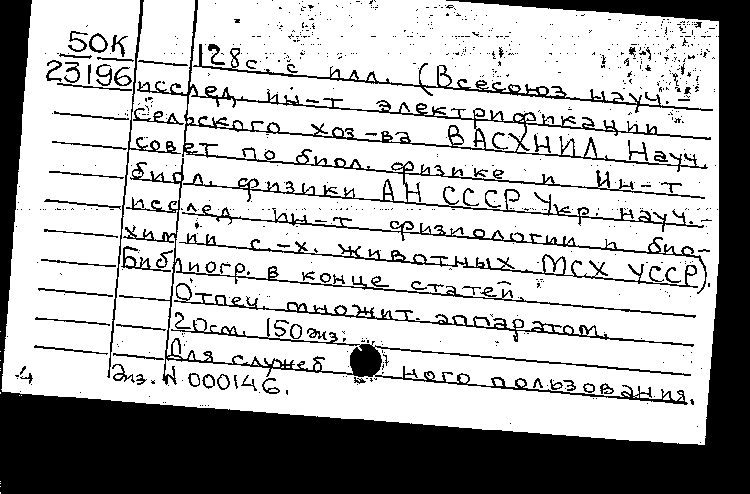 50К
23196
128с. с илл. (Всесоюз науч.-
исслед. ин-т электрификации
сельского хоз-ва ВАСХНИЛ. Науч.
совет по биол. физике и Ин-т
биол. физики АН СССР Укр. науч.-
исслед ин-т физиологии и био-
химии с.-х. животных МСХ УССР).
Библиогр. в конце статей.
Отпеч. множит. аппаратом.
20см. 150экз.
Для служеб ного пользования.
Экз. N 000146.
4